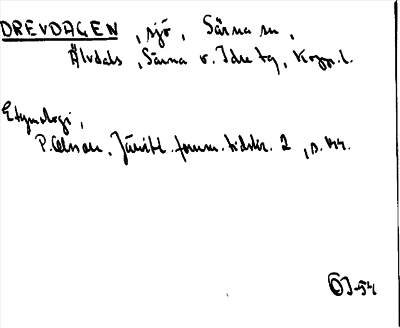 DREVDAGEN, sjö, Särna sn,
Älvdals, Särna o. Idre tg, Kopp. l.
Etymologi,
P. Olsson, Jämtl. fornm. tidskr. 2, s.
ÖJ-54